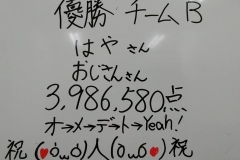 優勝 チームB
はやさん
おじさんさん
3,986,580点
オ→メ→デ→ト→Yeah!
祝(♥ó‿ó)人(òωó♥)祝